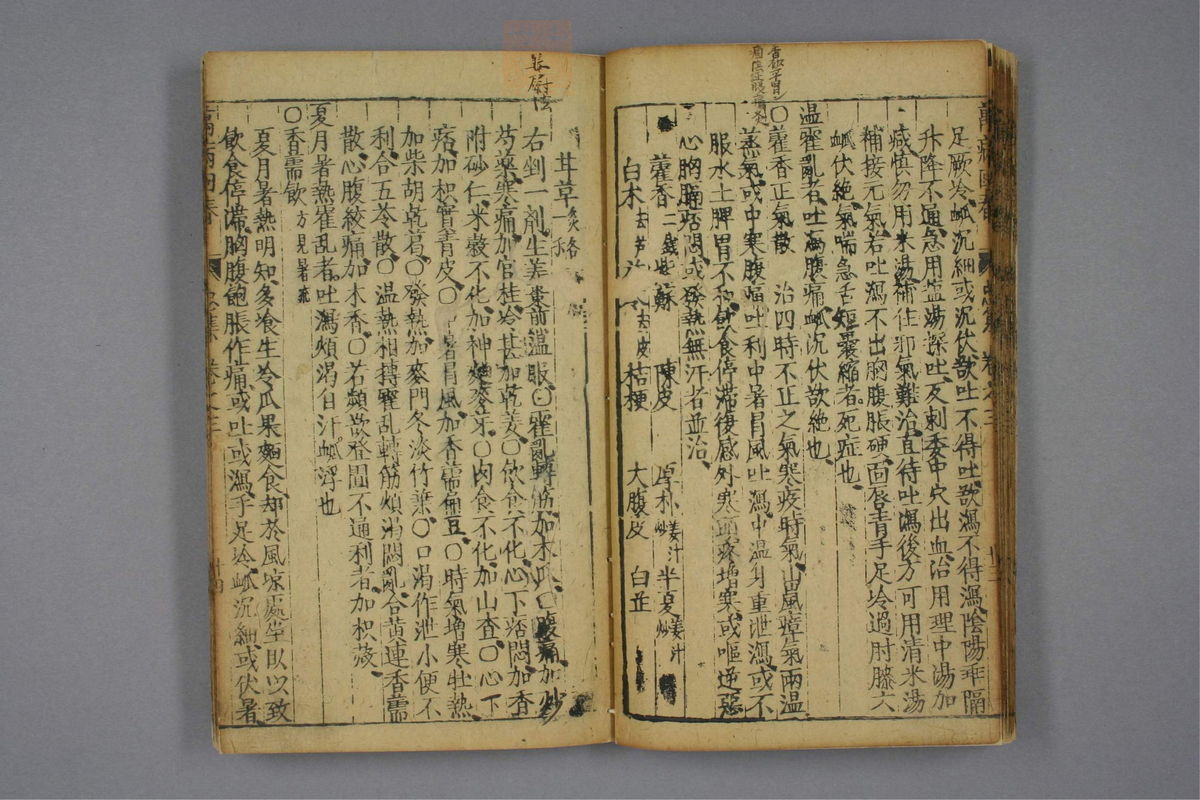 足厥冷䘑沉細或沉伏欲吐不得吐欲瀉不得瀉陰陽乖隔
升降不通急用盐湯探吐及刺委中穴出血治用理中湯加
減慎勿用米湯補住邪氣難治直待吐瀉後方可用清米湯
補接元氣若吐瀉不出胸腹脹硬面唇青手足冷過肘膝六
䘑伏絶氣喘急舌短囊縮者死症也
温霍亂者吐瀉腹痛䘑沉伏欲絶也
〇藿香正氣散 治四時不正之氣寒疫時氣山嵐瘴氣兩温
蒸氣或中寒腹痛吐利中暑冒風吐瀉中温身重泄瀉或不
服水土脾胃不和飲食停滯復感外寒頭疼增寒或嘔逆惡
心胸膈痞悶或發熱無汗者並治
藿香二錢 紫蘇 陳皮 厚朴姜汁炒 半夏姜汁炒
白木去芦 去皮 桔梗 大腹皮 白芷
甘草炙各一
右剉一劑生姜棗煎温服〇霍亂轉筋加木瓜〇腹痛加炒
芍藥寒痛加官桂冷甚加乾姜〇飲食不化心下痞悶加香
附砂仁〇米穀不化加神麯麥芽〇肉食不化加山查〇心下
痞加枳實青皮〇中暑冒風加香薷扁豆〇時氣增寒壯熱
加柴胡乾葛〇發熱加麥門冬淡竹葉〇口渴作泄小便不
利合五苓散〇温熱相搏霍乱轉筋煩渴悶亂合黃連香薷
散心腹絞痛加木香〇若頻欲登圊不通利者加枳殼
夏月暑熱霍乱者吐瀉煩渴自汗䘑浮也
〇香薷飲方見暑症
夏月暑熱明知多飡生冷瓜果麵食却於風凉處坐臥以致
飲食停滯胸腹飽脹作痛或吐或瀉手足冷䘑沉細或伏暑